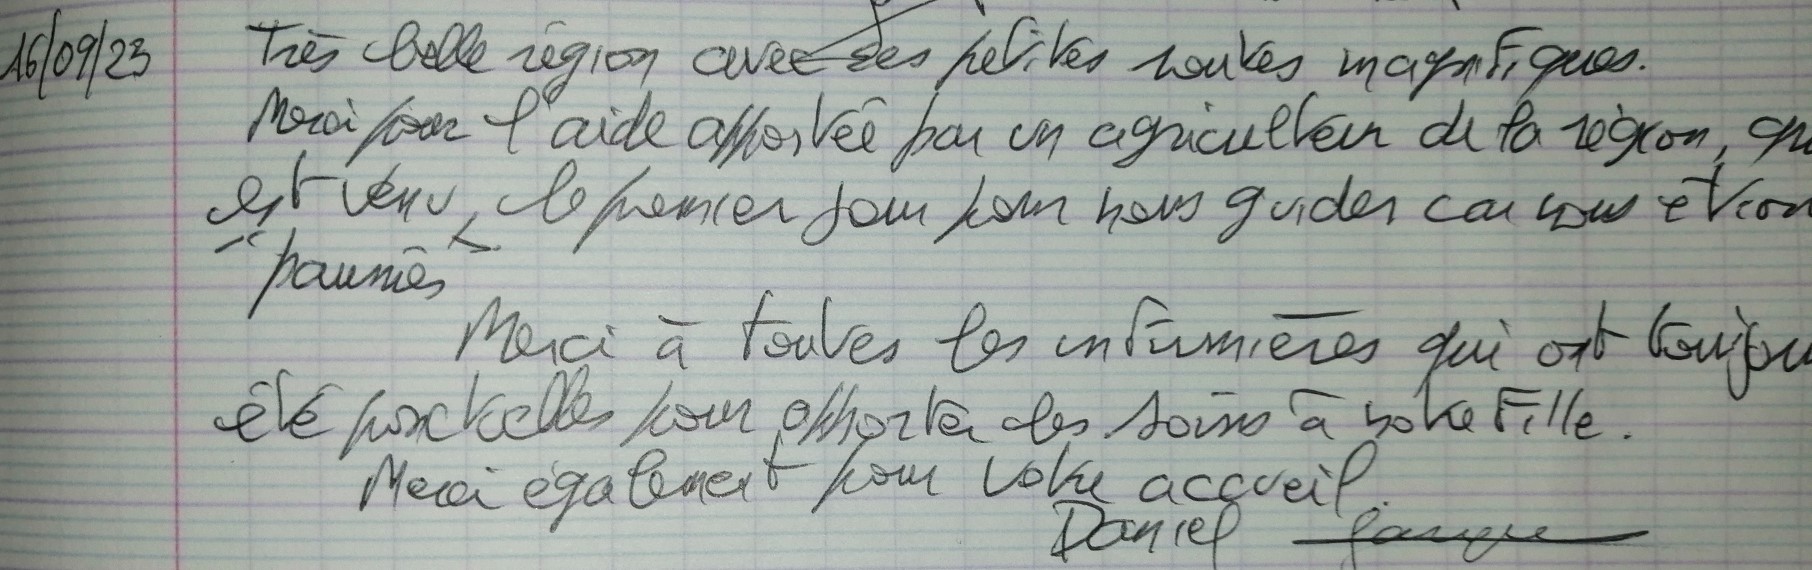 16/09/23 Très belle région avec des petites routes magnifiques.
Merci pour l'aide apportée par un agriculteur de la région, qu
est venu, le premier jour pour nous guider car nous étion
"paumés"
Merci à toutes les infirmières qui ont toujou
été ponctuelles pour apporter des soins à notre fille.
Merci également pour votre accueil.
Daniel